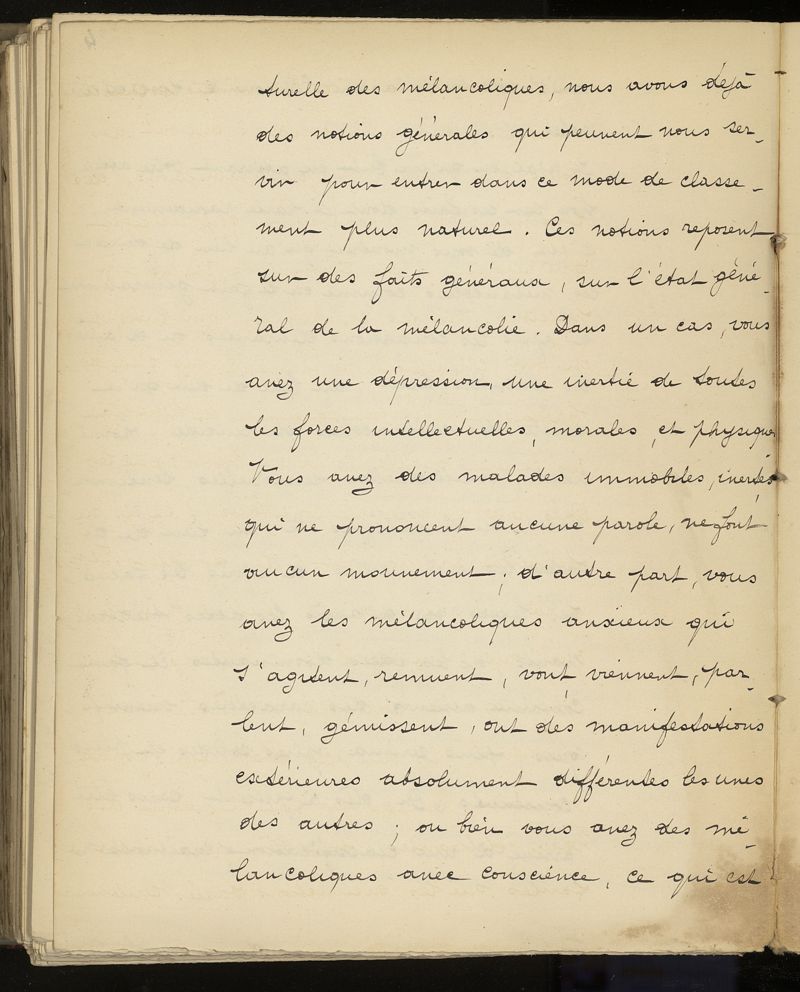 turelle des mélancoliques, nous avons déjà
des notions générales qui peuvent nous ser-
vir pour entrer dans ce mode de classe-
ment plus naturel. Ces notions reposent
sur des faits généraux, sur l'état géné-
ral de la mélancolie. Dans un cas, vous
avez une dépression, une inertie de toutes
les forces intellectuelles, morales, et physiques.
Vous avez des malades immobiles, inertes,
qui ne prononcent aucune parole, ne font
aucun mouvement; d'autre part, vous
avez les mélancoliques anxieux qui
s'agitent, remuent, vont, viennent, par-
lent, gémissent, ont des manifestations
extérieures absolument différentes les unes
des autres; ou bien vous avez des mé-
lancoliques avec conscience, ce qui est